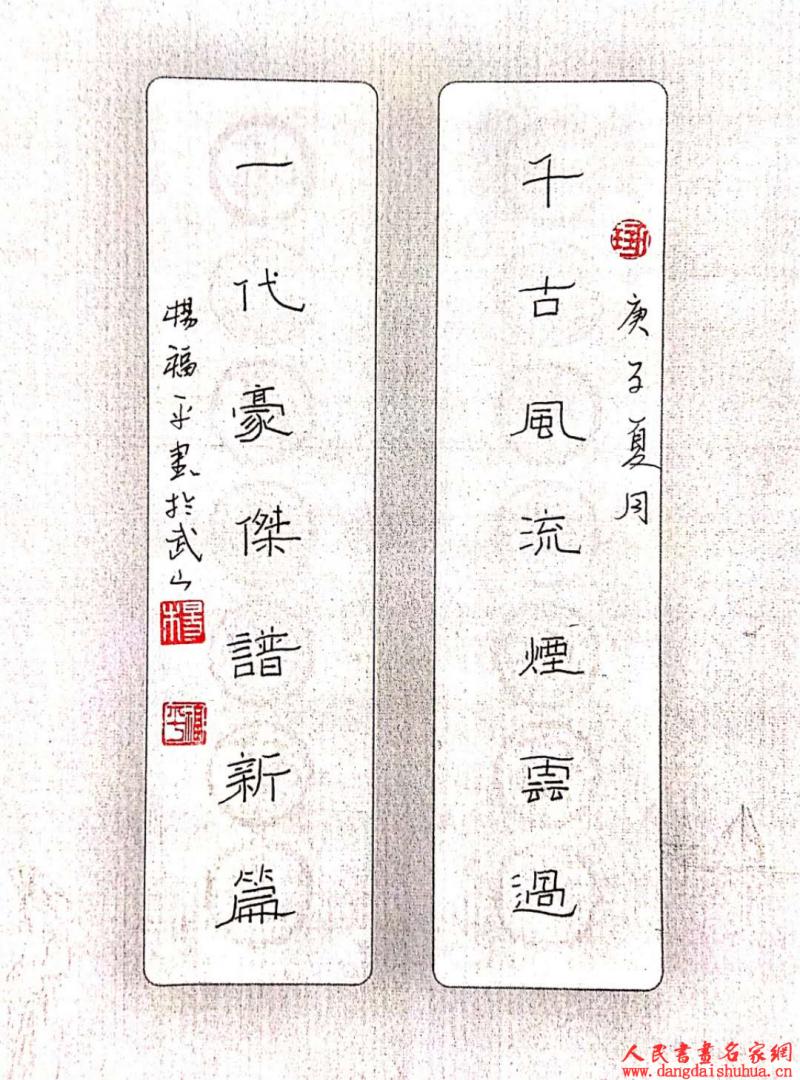 庚子夏月
千古風流煙雲過
一代豪傑譜新篇
楊福平書於武山
楊
福平
人民書畫名家網
www.dangdaishuhua.cn